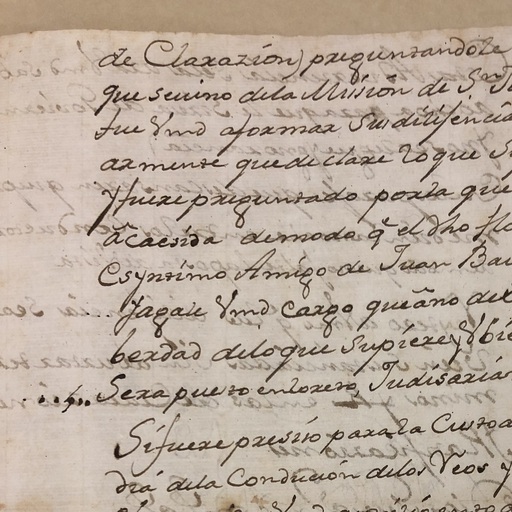 de Claxazión) preguntandole
que se vino dela Missión de Sn Ju
fue Vmd aformax Susdilisencia
axmente que declare loque S
y fuere preguntado poxla que
acaesida demodo q̃ el dho flo
Esyntimo Amigo de Juan Bau
hagale Vmd Cargo que ano dex
berdad delo que Supiere y
Sera puesto en loreto, Judisaria
Sifuere presiso paxa la Custo
dia dela Condución delos Reos y